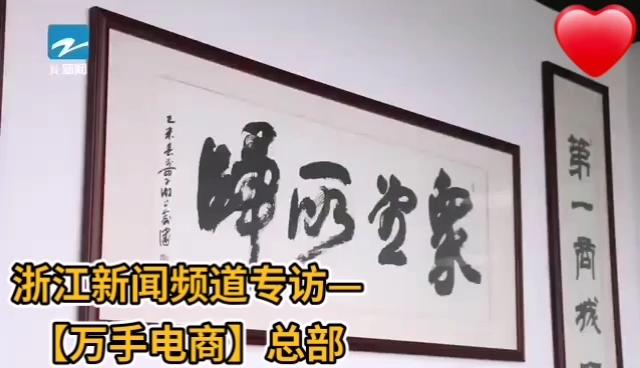 新闻
眾望所歸
第一商城
浙江新闻频道专访—
【万手电商】总部